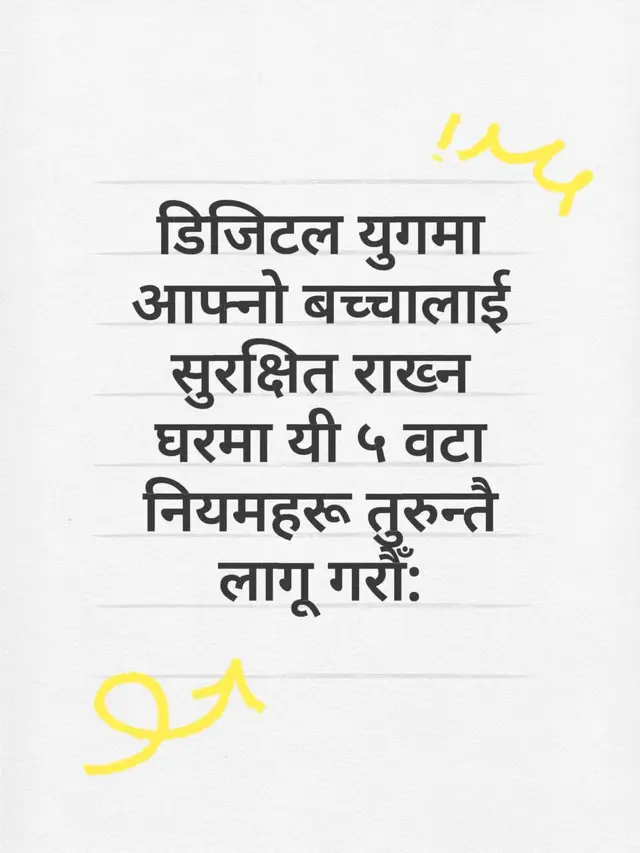 डिजिटल युगमा
आफ्नो बच्चालाई
सुरक्षित राख्न
घरमा यी ५ वटा
नियमहरू तुरुन्तै
लागू गरौँ: